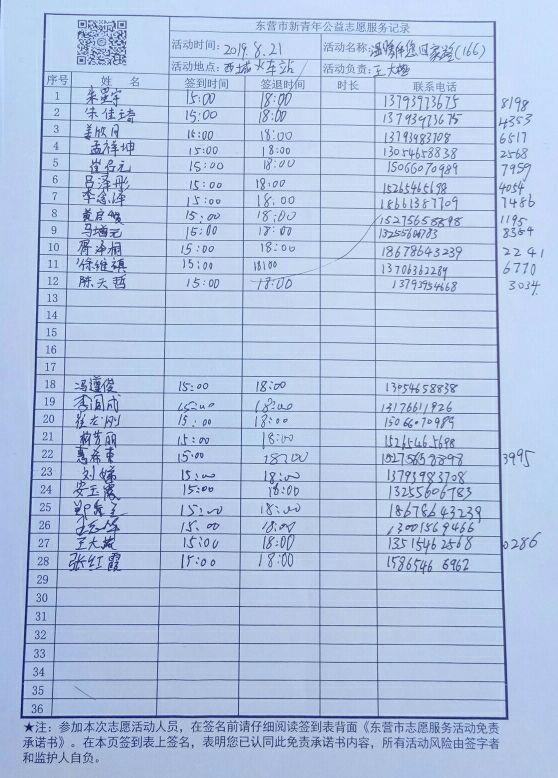 东营市新青年公益志愿服务记录
活动时间: 2019.8.21 活动名称: 温情伴您回家路(166)
活动地点: 西城火车站 活动负责: 王大燕
序号 姓名 签到时间 签退时间 时长 联系电话
1 15:00 18:00 13793973675 8198
2 朱佳琦 15:00 18:00 13793973675 4353
3 姜欣月 15:00 18:00 13793983708 6517
4 孟祥坤 15:00 18:00 13054658838 2568
5 崔启元 15:00 18:00 15066070989 7959
6 吕泽彤 15:00 18:00 15265465698 4054
7 李念泽 15:00 18:00 18661387709 7486
8 15:00 18:00 15275658898 1195
9 15:00 18:00 13255606783 8354
10 15:00 18:00 18678643239 2241
11 徐维祺 15:00 18:00 13706362289 6770
12 陈天哲 15:00 18:00 13793954668 3034
13
14
15
16
17
18 冯遵俊 15:00 18:00 13054658838
19 李国成 15:00 18:00 13176611926
20 崔龙刚 15:00 18:00 15066070989
21 15:00 18:00 15265465698
22 惠希东 15:00 18:00 15275658898 3995
23 刘娣 15:00 18:00 13793983708
24 安玉霞 15:00 18:00 13255606783
25 15:00 18:00 18678643239
26 15:00 18:00 13001569466
27 王大燕 15:00 18:00 13515462568 0286
28 张红霞 15:00 18:00 15865466962
29
30
31
32
33
34
35
36
★注: 参加本次志愿活动人员，在签名前请仔细阅读签到表背面《东营市志愿服务活动免责
承诺书》。在本页签到表上签名，表明您已认同此免责承诺书内容，所有活动风险由签字者
和监护人自负。